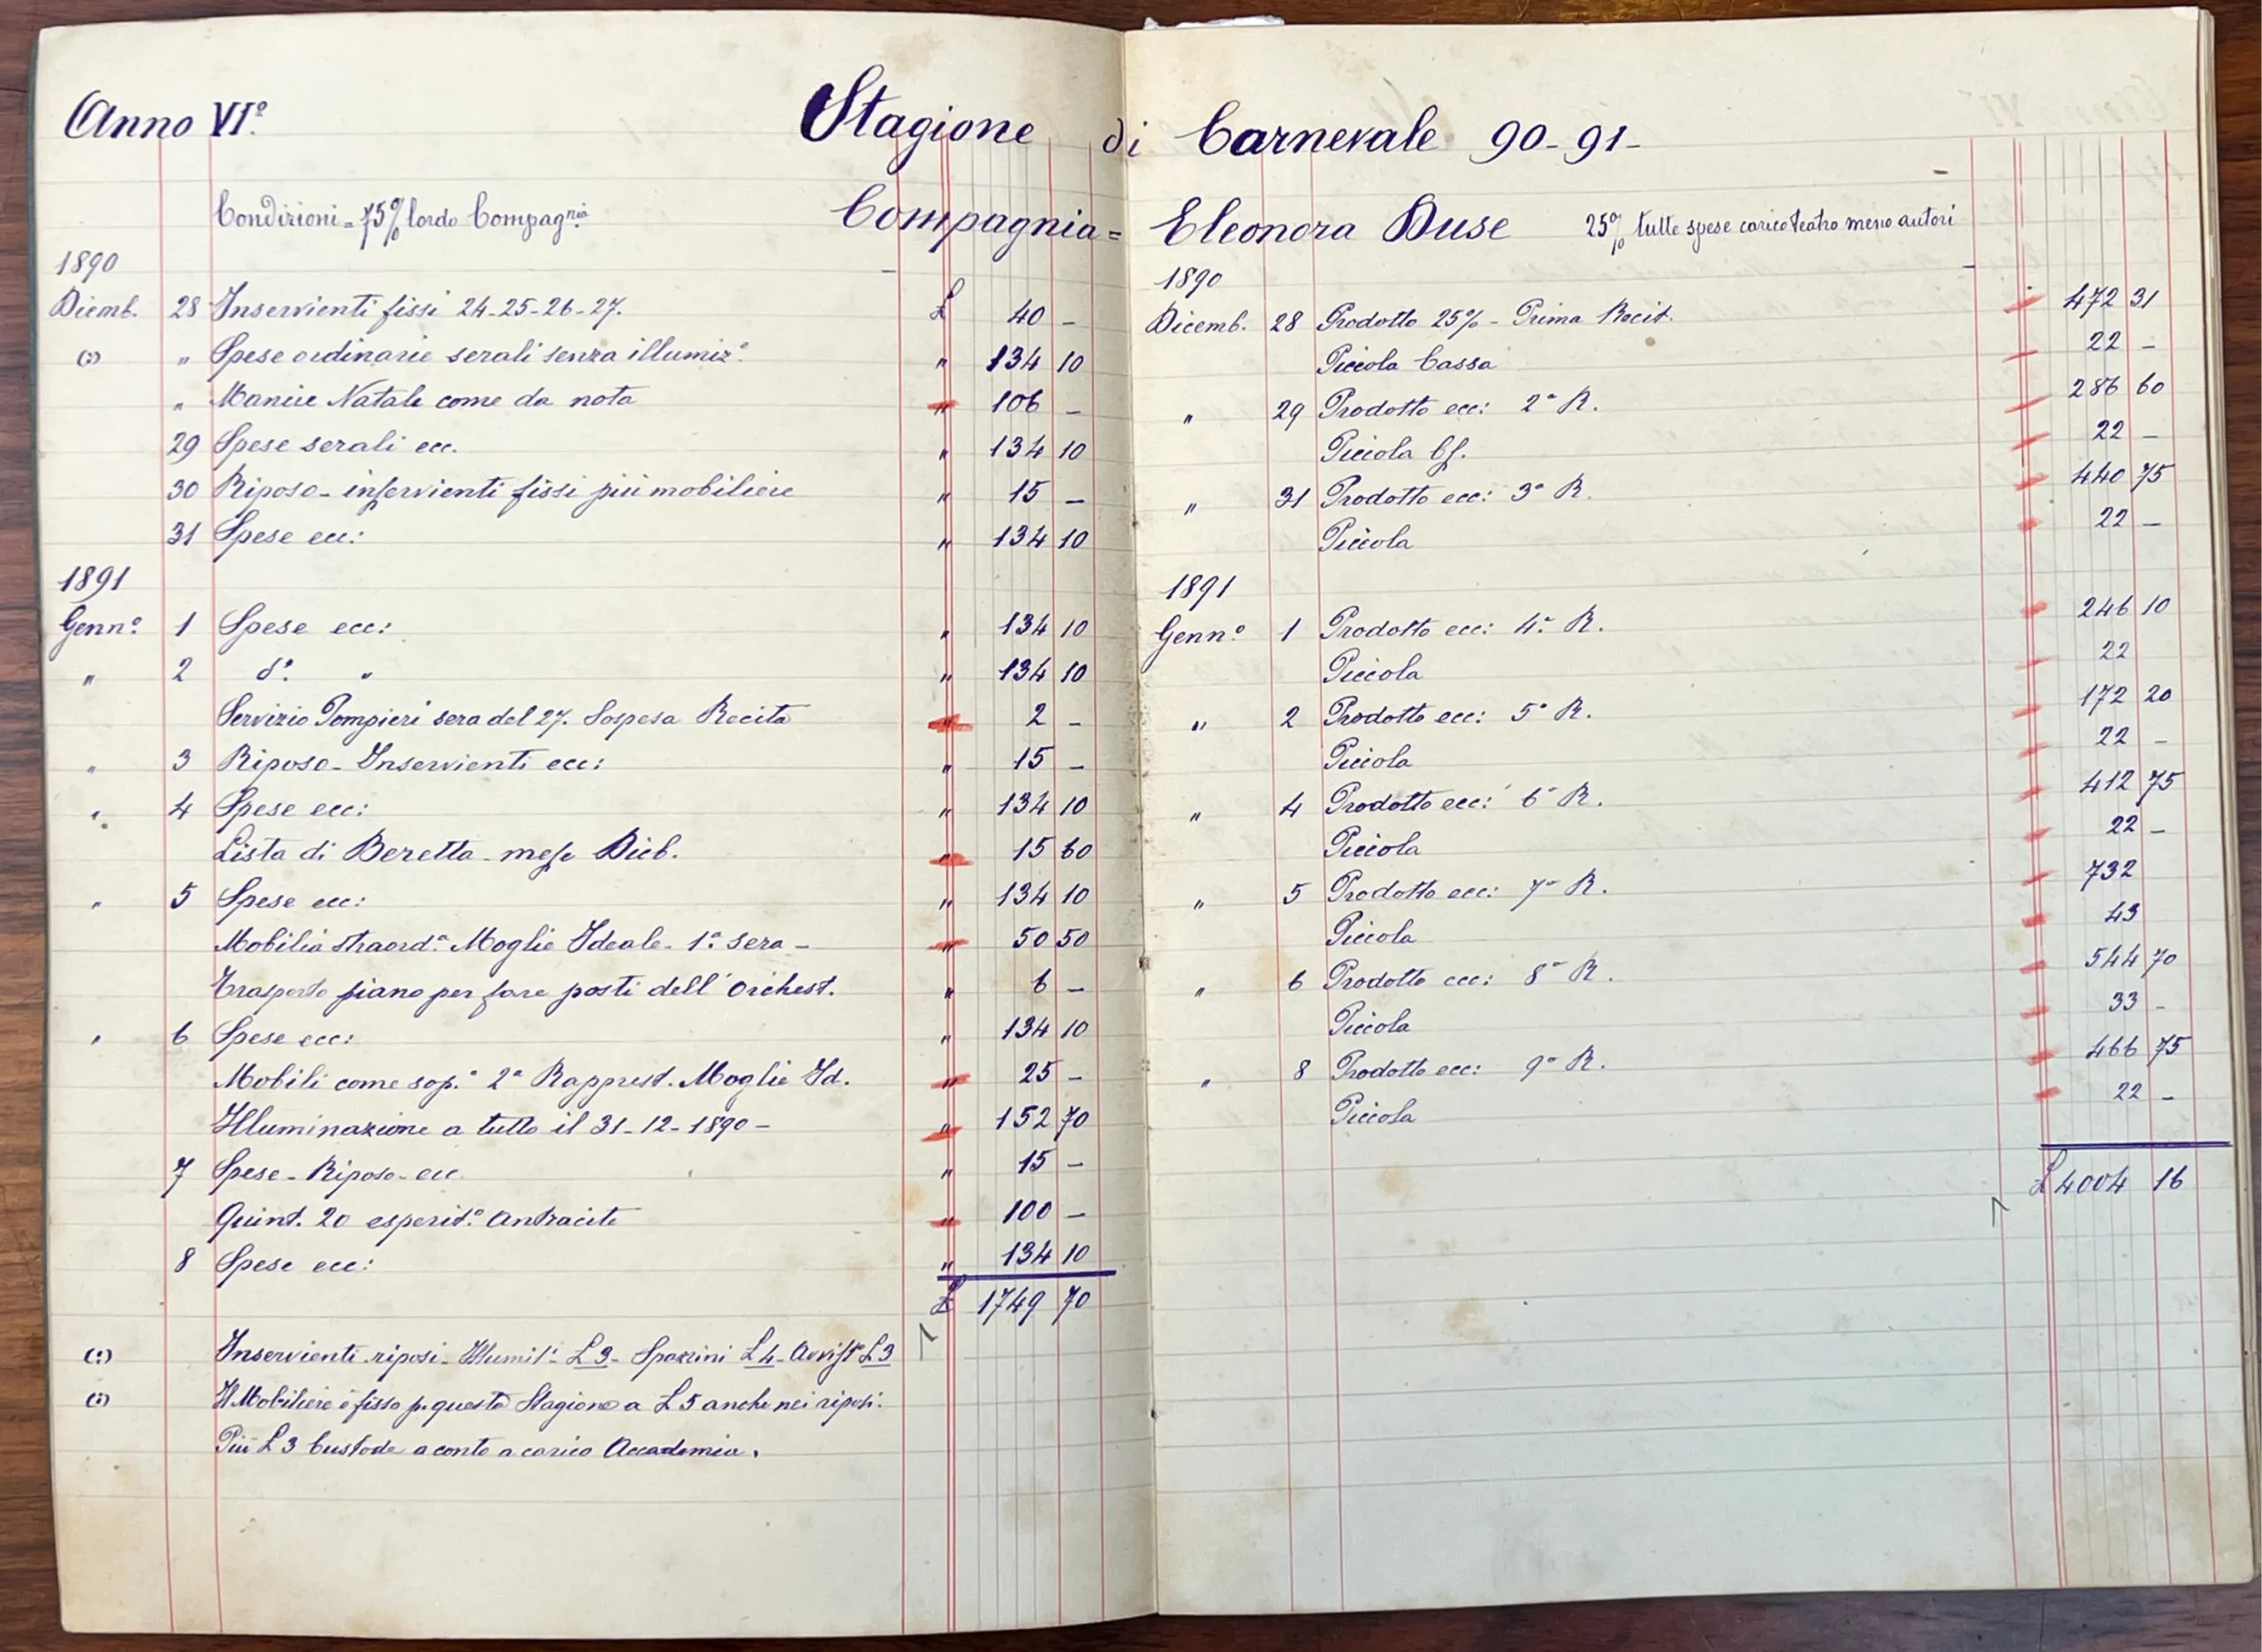 Anno VI°.
Stagione di Carnevale 90-91-
Condizioni = 75% lordo Compagnia
Compagnia = Eleonora Duse
25% tutte spese carico teatro meno autori
1890
Diemb. 28 Inservienti fissi 24-25-26-27. £ 40 -
(:) " Spese ordinarie serali senza illumiz.e " 134 10
" Mancie Natale come da nota " 106 -
29 Spese serali ecc. " 134 10
30 Riposo - inservienti fissi più mobiliere " 15 -
31 Spese ecc: " 134 10
1891
Genn.o 1 Spese ecc: " 134 10
" 2 d.o " " 134 10
Servizio Pompieri sera del 27. Sospesa Recita " 2 -
" 3 Riposo - Inservienti ecc: " 15 -
" 4 Spese ecc: " 134 10
Lista di Beretta - mese Dicb. " 15 60
" 5 Spese ecc: " 134 10
Mobilia straord.a Moglie Ideale - 1.a sera - " 50 50
Trasporto piano per fare posti dell'Orchest. " 6 -
" 6 Spese ecc: " 134 10
Mobili come sop.a 2.a Rapprest. Moglie Id. " 25 -
Illuminazione a tutto il 31-12-1890 - " 152 70
7 Spese - Riposo - ecc " 15 -
Quint. 20 Antracite " 100 -
8 Spese ecc: " 134 10
£ 1749 70
(:) Inservienti riposi - L 3 - Spazzini L 4 - L 3
(:) Il Mobiliere è fisso p. questa Stagione a L 5 anche nei riposi.
Più L 3 Custode a conto a carico Accademia.
1890
Dicemb. 28 Prodotto 25% - Prima Recit. 472 31
Piccola Cassa 22 -
" 29 Prodotto ecc: 2a R. 286 60
Piccola Cs. 22 -
" 31 Prodotto ecc: 3a R. 440 75
Piccola 22 -
1891
Genn.o 1 Prodotto ecc: 4a R. 246 10
Piccola 22
" 2 Prodotto ecc: 5a R. 172 20
Piccola 22 -
" 4 Prodotto ecc: 6a R. 412 75
Piccola 22 -
" 5 Prodotto ecc: 7a R. 732
Piccola 43
" 6 Prodotto ecc: 8a R. 544 70
Piccola 33 -
" 8 Prodotto ecc: 9a R. 466 75
Piccola 22 -
£ 4004 16